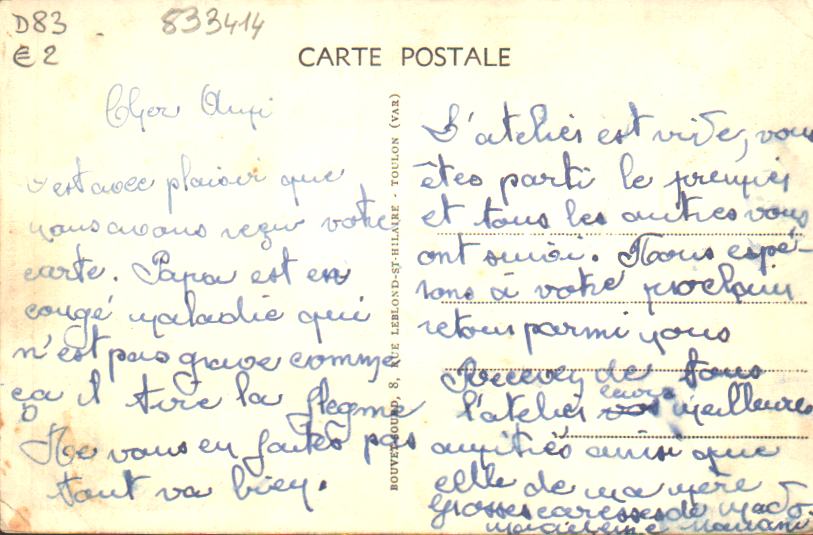 D83
833414
€2
CARTE POSTALE
Cher Ami
c'est avec plaisir que
nous avons reçu votre
carte. Papa est en
congé maladie qui
n'est pas grave comme
ça il tire la flegme
Ne vous en faites pas
tout va bien.
BOUVET-SOURD, 8, RUE LEBLOND-ST-HILAIRE - TOULON (VAR)
L'atelier est vide, vous
êtes parti le premier
et tous les autres vous
ont suivi. Nous espé-
rons à votre prochain
retour parmi nous
Recevez de tous
l'atelier leurs meilleures
amitiés ainsi que
elle de ma mère
Grosses caresses de Mado.
Madeleine